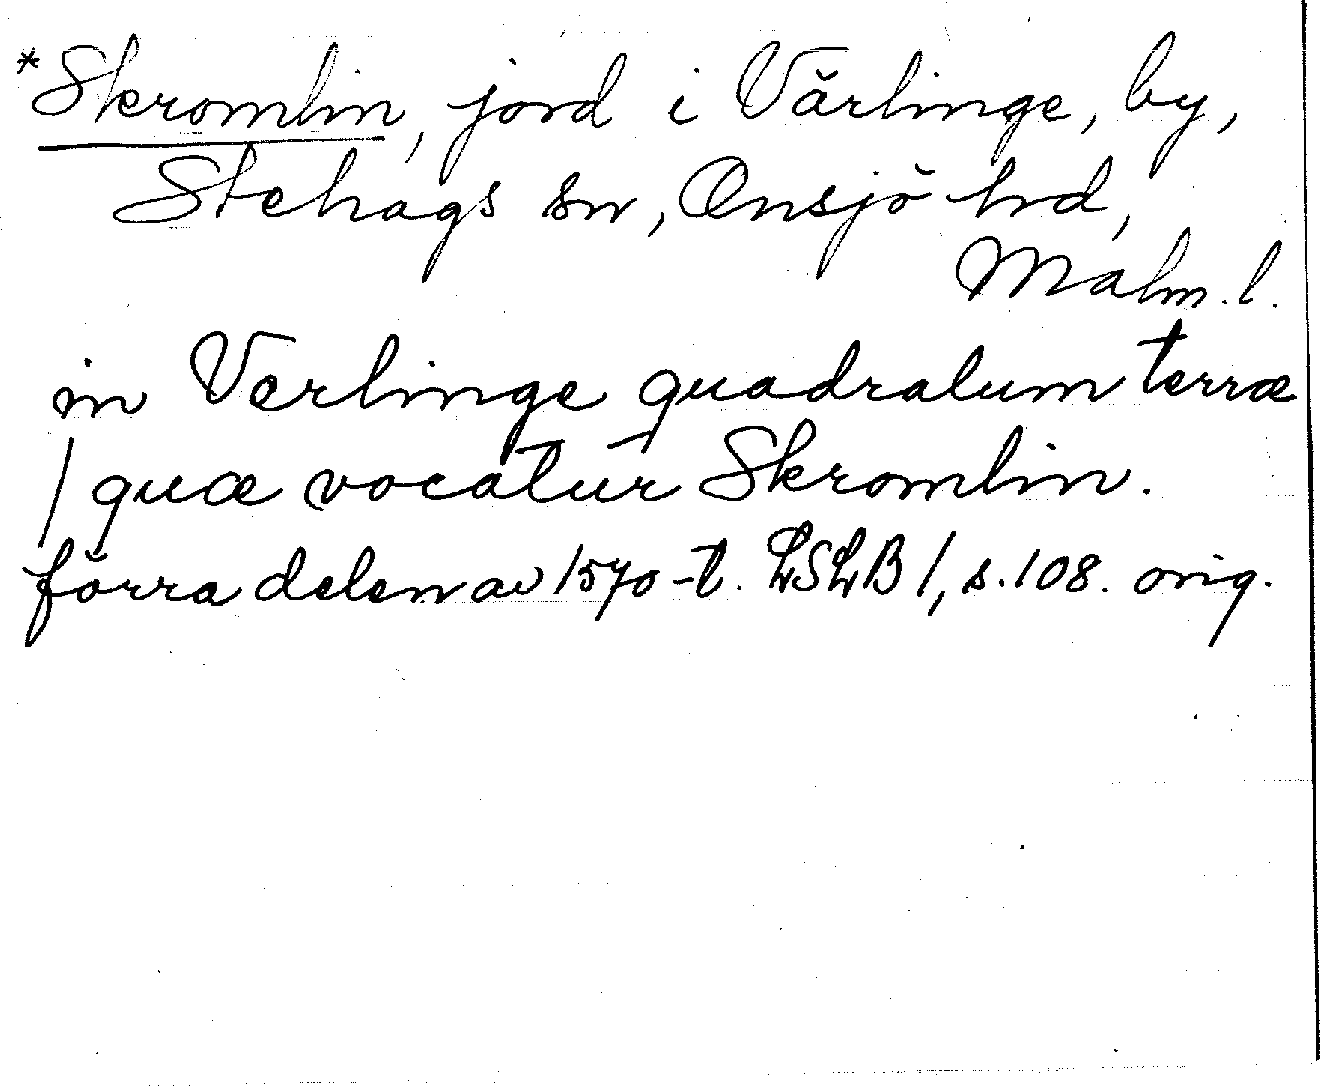 *Skromlin, jord i Värlinge, by,
Stehags sn, Onsjö hrd,
Malm. l.
in Værlinge quadratum terræ
/ quæ vocatur Skromlin.
förra delen av 1570-t. LSLB I, s. 108. orig.